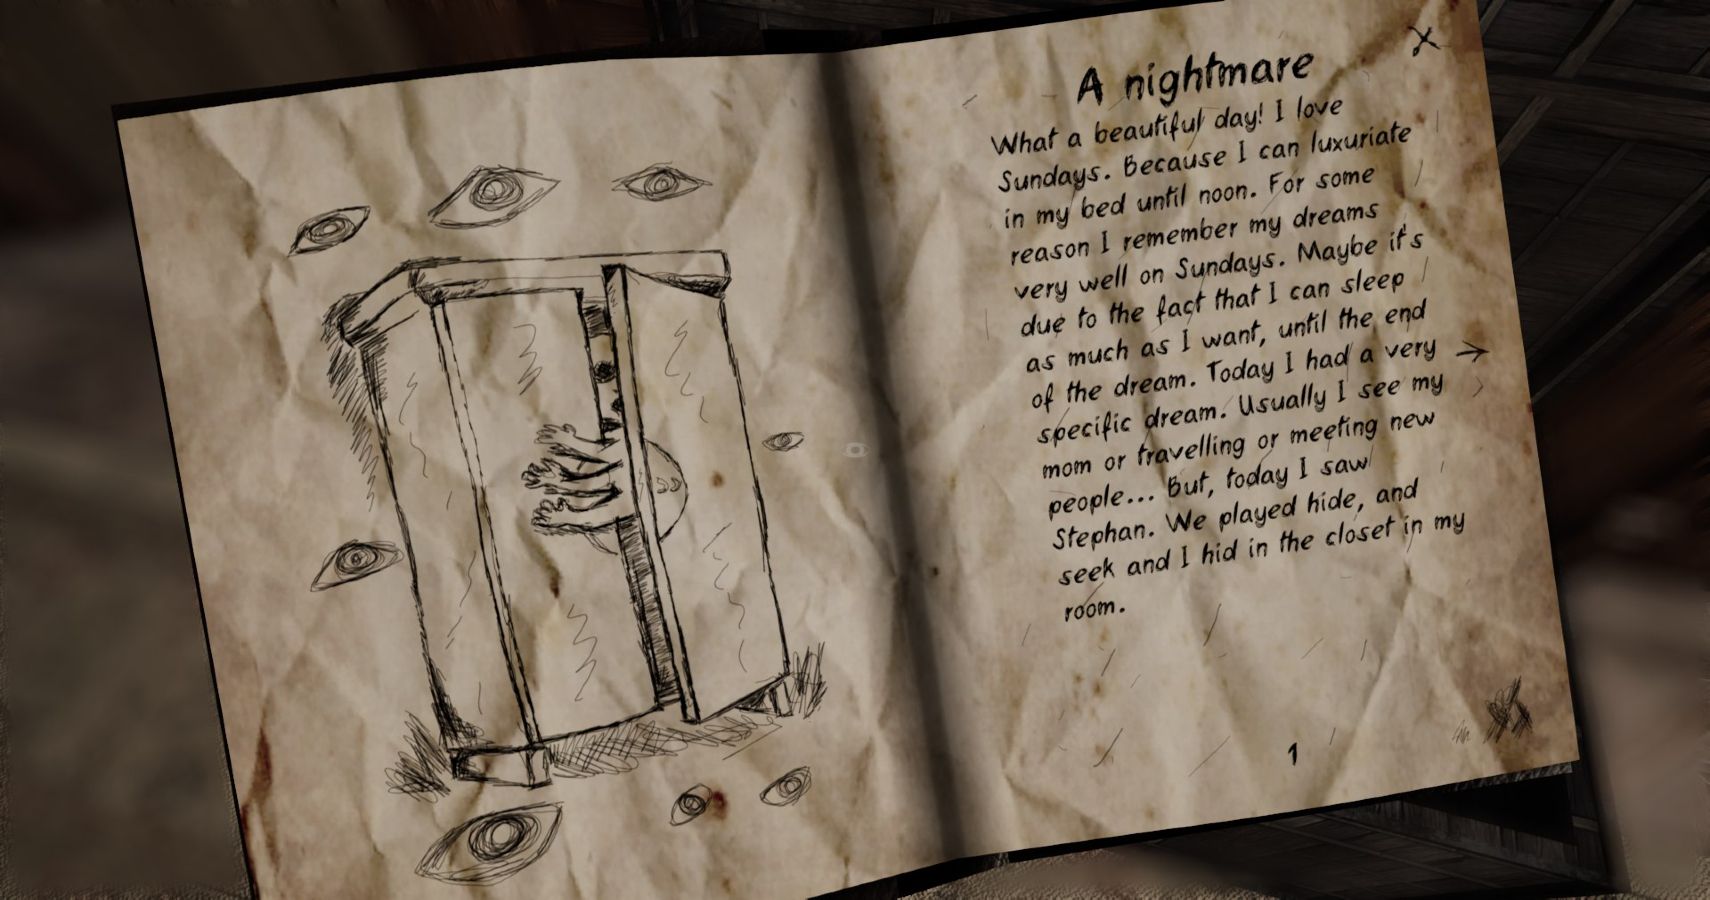 A nightmare
What a beautiful day! I love
Sundays. Because I can luxuriate
in my bed until noon. For some
reason I remember my dreams
very well on Sundays. Maybe it's
due to the fact that I can sleep
as much as I want, until the end
of the dream. Today I had a very
specific dream. Usually I see my
mom or travelling or meeting new
people... But, today I saw
Stephan. We played hide, and
seek and I hid in the closet in my
room.
1